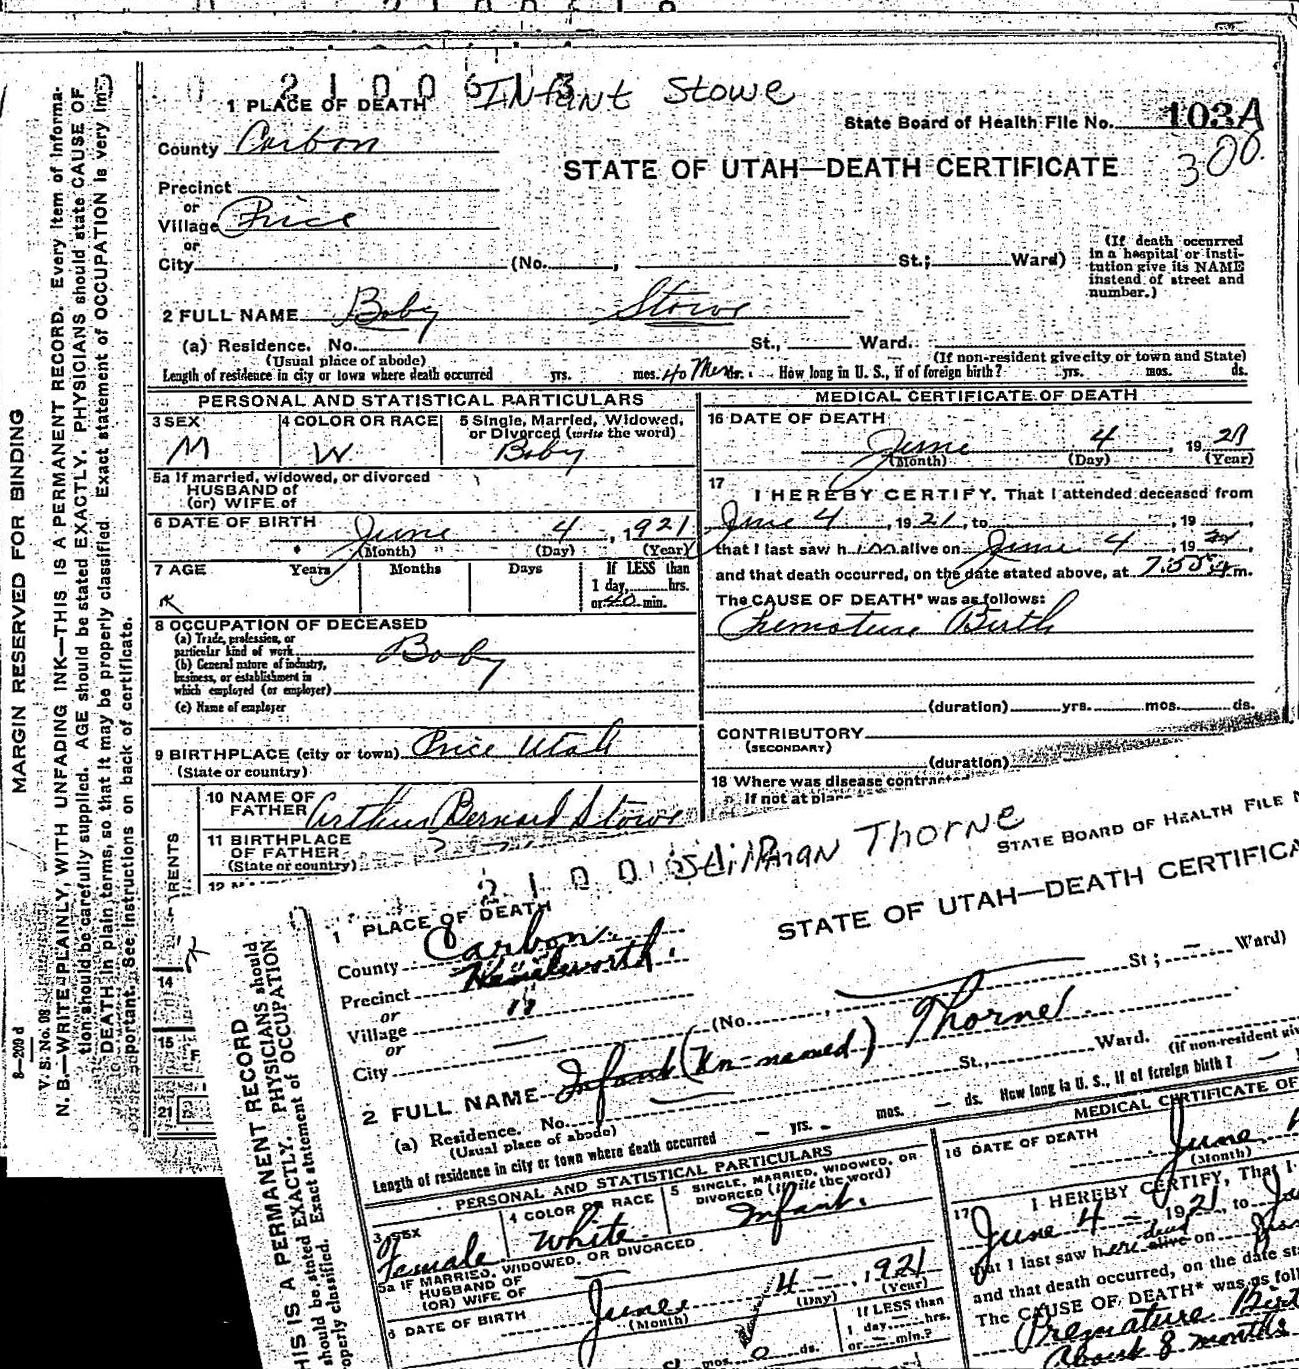 2100613 Infant Stowe
1 PLACE OF DEATH
State Board of Health File No. 103A
300.
County Carbon
STATE OF UTAH—DEATH CERTIFICATE
Precinct
or
Village Price
or
City (No. , St.; Ward)
(If death occurred
in a hospital or insti-
tution give its NAME
instead of street and
number.)
2 FULL NAME Baby Stowe
(a) Residence. No. St., Ward.
(Usual place of abode) (If non-resident give city or town and State)
Length of residence in city or town where death occurred yrs. mos. 40 Min. How long in U. S., if of foreign birth? yrs. mos. ds.
PERSONAL AND STATISTICAL PARTICULARS
3 SEX 4 COLOR OR RACE 5 Single, Married, Widowed,
or Divorced (write the word)
M W. Baby
5a If married, widowed, or divorced
HUSBAND of
(or) WIFE of
6 DATE OF BIRTH June 4 , 1921
(Month) (Day) (Year)
7 AGE Years Months Days If LESS than
1 day, hrs.
or 40 min.
8 OCCUPATION OF DECEASED
(a) Trade, profession, or
particular kind of work Baby
(b) General nature of industry,
business, or establishment in
which employed (or employer)
(c) Name of employer
9 BIRTHPLACE (city or town) Price Utah
(State or country)
10 NAME OF
FATHER Arthur Bernard Stowe
11 BIRTHPLACE
OF FATHER
(State or country)
12
14
15
21
MEDICAL CERTIFICATE OF DEATH
16 DATE OF DEATH
June 4 , 1921
(Month) (Day) (Year)
17
I HEREBY CERTIFY, That I attended deceased from
June 4 , 1921, to , 19
that I last saw him alive on June 4 , 19
and that death occurred, on the date stated above, at m.
The CAUSE OF DEATH* was as follows:
Premature Birth
(duration) yrs. mos. ds.
CONTRIBUTORY
(SECONDARY)
(duration)
18 Where was disease contracted
If not at place
MARGIN RESERVED FOR BINDING
8—209 d
V. S. No. 08
N. B.—WRITE PLAINLY, WITH UNFADING INK—THIS IS A PERMANENT RECORD. Every item of informa-
tion should be carefully supplied. AGE should be stated EXACTLY. PHYSICIANS should state CAUSE OF
DEATH in plain terms, so that it may be properly classified. Exact statement of OCCUPATION is very im-
portant. See instructions on back of certificate.
RENTS
2100 Stillman Thorne
STATE BOARD OF HEALTH FILE N
1 PLACE OF DEATH
STATE OF UTAH—DEATH CERTIFICA
County Carbon.
Precinct Kenilworth.
or
Village "
or
City — (No. , St; — Ward)
2 FULL NAME Infant (Un-named) Thorne
(a) Residence. No. St., Ward.
(Usual place of abode) (If non-resident giv
Length of residence in city or town where death occurred — yrs. — mos. — ds. How long in U. S., if of foreign birth? —
PERSONAL AND STATISTICAL PARTICULARS
3 SEX 4 COLOR OR RACE 5 SINGLE, MARRIED, WIDOWED, OR
DIVORCED (Write the word)
Female White. Infant.
5a IF MARRIED, WIDOWED, OR DIVORCED
HUSBAND OF
(OR) WIFE OF
6 DATE OF BIRTH June 4 — , 1921
(Month) (Day) (Year)
If LESS than
1 day, hrs.
or min.?
mos. 0 ds.
MEDICAL CERTIFICATE OF
16 DATE OF DEATH
June
(Month)
17 I HEREBY CERTIFY, That I
June 4 — 1921, to
that I last saw her dead alive on
and that death occurred, on the date sta
The CAUSE OF DEATH* was as foll
Premature Birt
About 8 months
HIS IS A PERMANENT RECORD
should be stated EXACTLY. PHYSICIANS should
operly classified. Exact statement of OCCUPATION